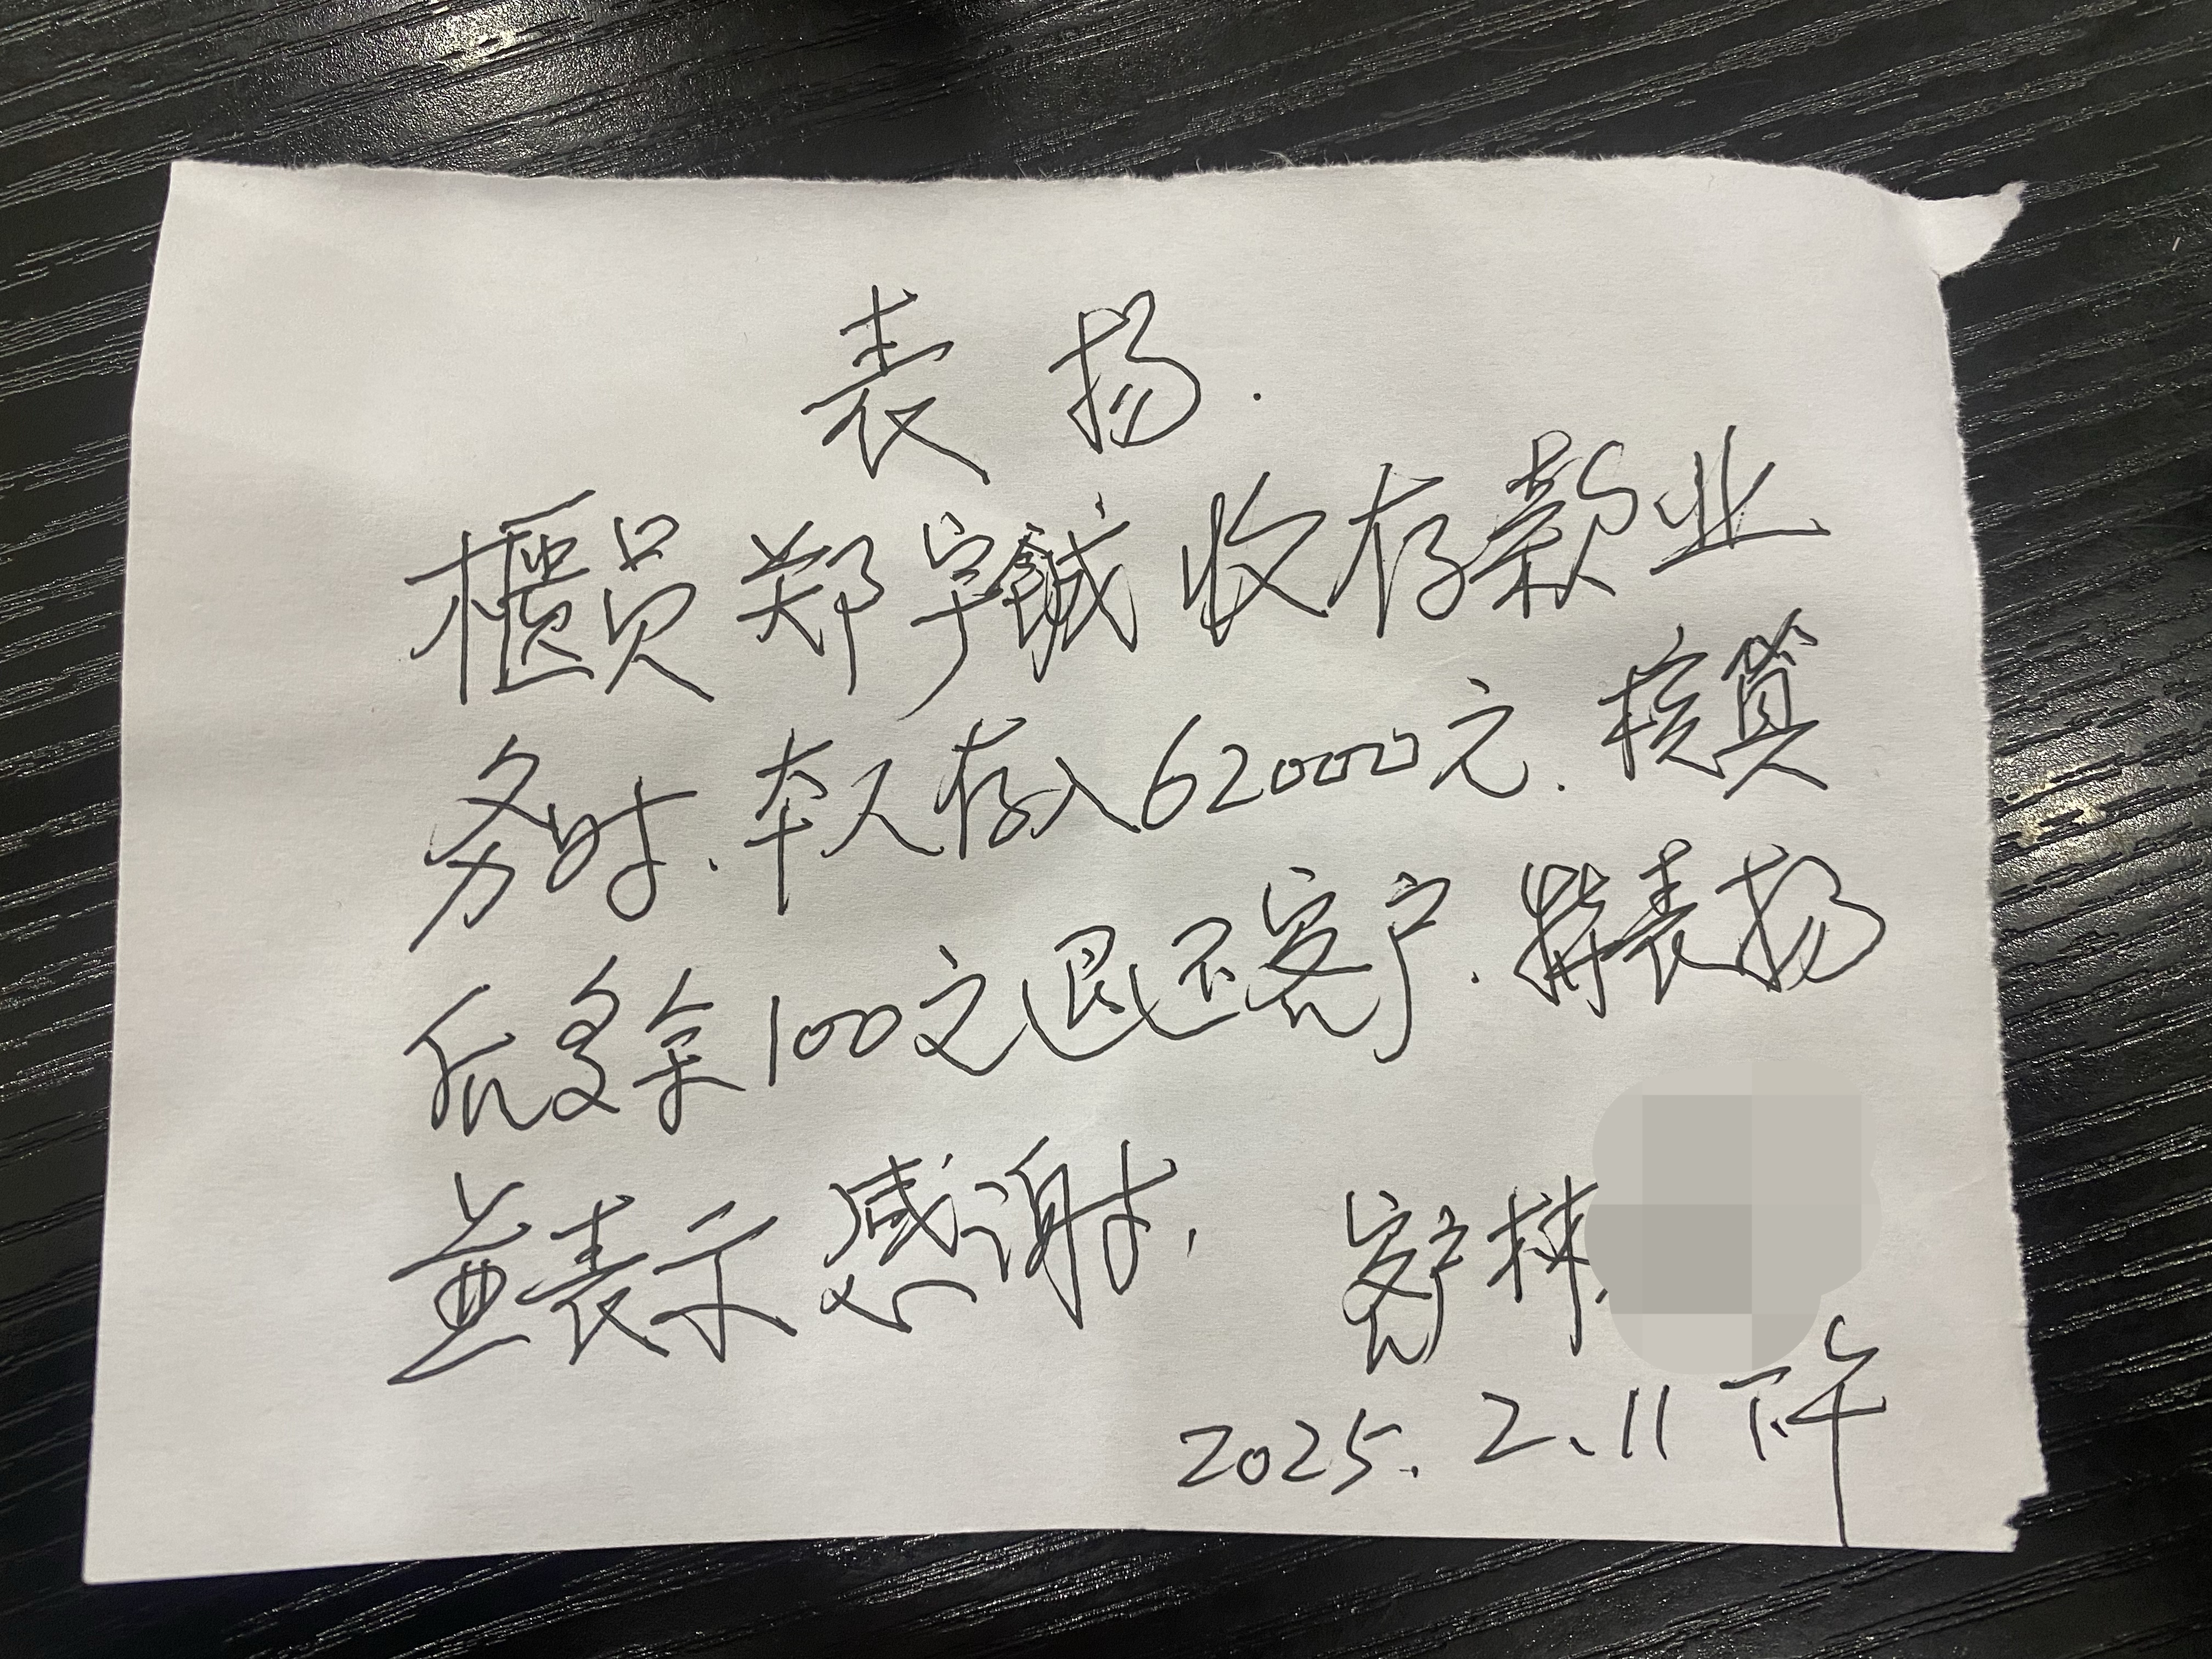 表扬.
柜员郑宇鋮收存款业
务时、本人存入62000元.核算
后多余100文退还客户.特表扬
並表示感谢,
客户林
2025.2.11下午